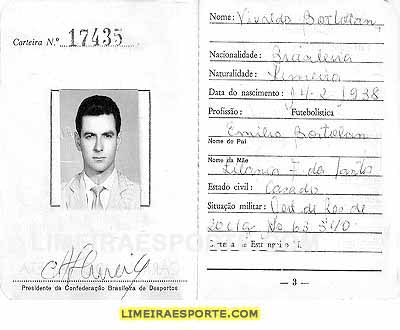 Carteira N.º 17435
Presidente da Confederação Brasileira de Desportos
Nome: Vivaldo Bortolan
Nacionalidade: Brasileira
Naturalidade: Limeira
Data do nascimento: 04-2-1938
Profissão: Futebolistica
Emilio Bortolan
Nome do Pai
Nome da Mãe
dos Santos
Estado civil: Casado
Situação militar:
Carteira de Estrangeiro N.º
— 3 —
LIMEIRAESPORTE.COM
LIMEIRAESPORTE.COM